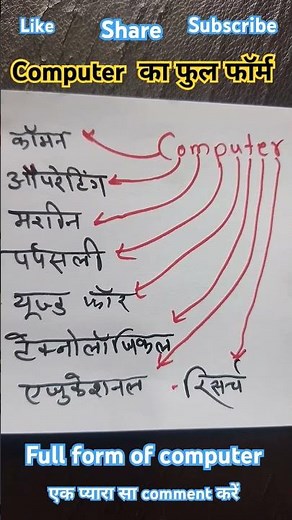 Like Share Subscribe
Computer का फुल फॉर्म
कॉमन Computer
ऑपरेटिंग
मशीन
पर्पसली
यूज्ड फॉर
टैक्नोलॉजिकल
एजुकेशनल - रिसर्च
Full form of computer
एक प्यारा सा comment करें